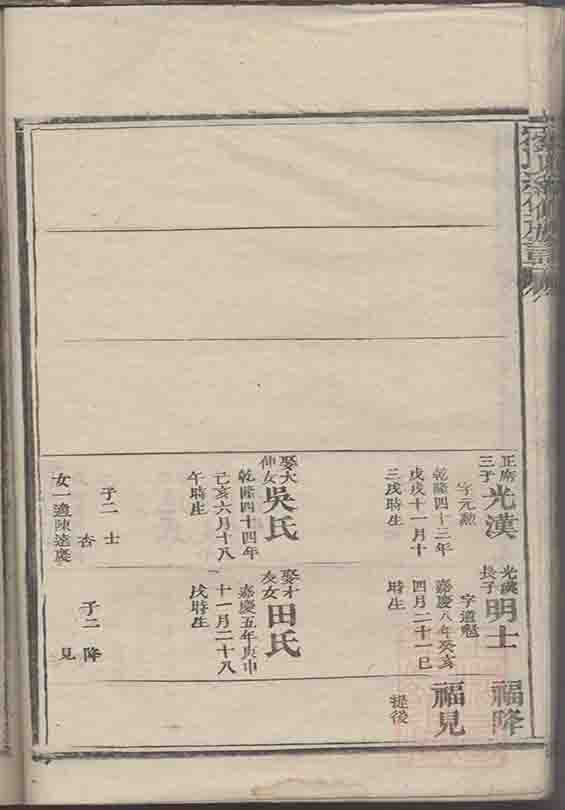 劉氏續修族譜
三子
光漢
字元勲
乾隆四十三年
戊戌十一月十
三戌時生
娶大
仲女
吳氏
乾隆四十四年
己亥六月十八
午時生
子二 士
杏
女一適陳遠慶
光漢
長子
明士
字道魁
嘉慶八年癸亥
四月二十一巳
時生
娶才
友女
田氏
嘉慶五年庚申
十一月二十八
戌時生
子二 降
見
福降
福見
提後